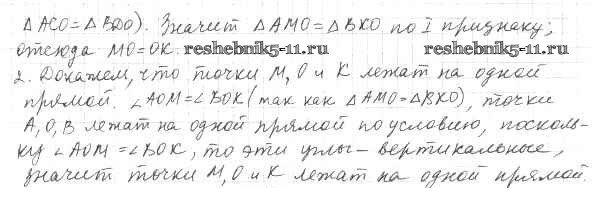 △ ACO = △ BDO). Значит △ AMO = △ BKO по I признаку;
отсюда MO = OK. reshebnik5-11.ru reshebnik5-11.ru
2. Докажем, что точки M, O и K лежат на одной
прямой. ∠AOM = ∠BOK (так как △ AMO = △ BKO), точки
A, O, B лежат на одной прямой по условию, посколь-
ку ∠AOM = ∠BOK, то эти углы – вертикальные,
значит точки M, O и K лежат на одной прямой.